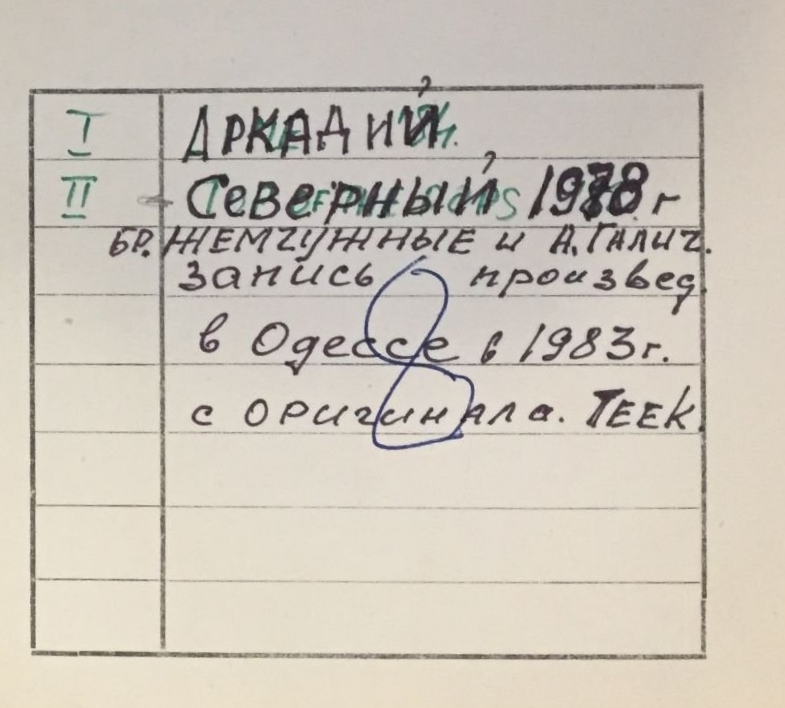 I АРКАДИЙ
II СЕВЕРНЫЙ 1978 г
БР. ЖЕМЧУЖНЫЕ и А. ГАЛИЧ.
запись произвед.
в Одессе в 1983г.
с оригинала. TEEK.
8